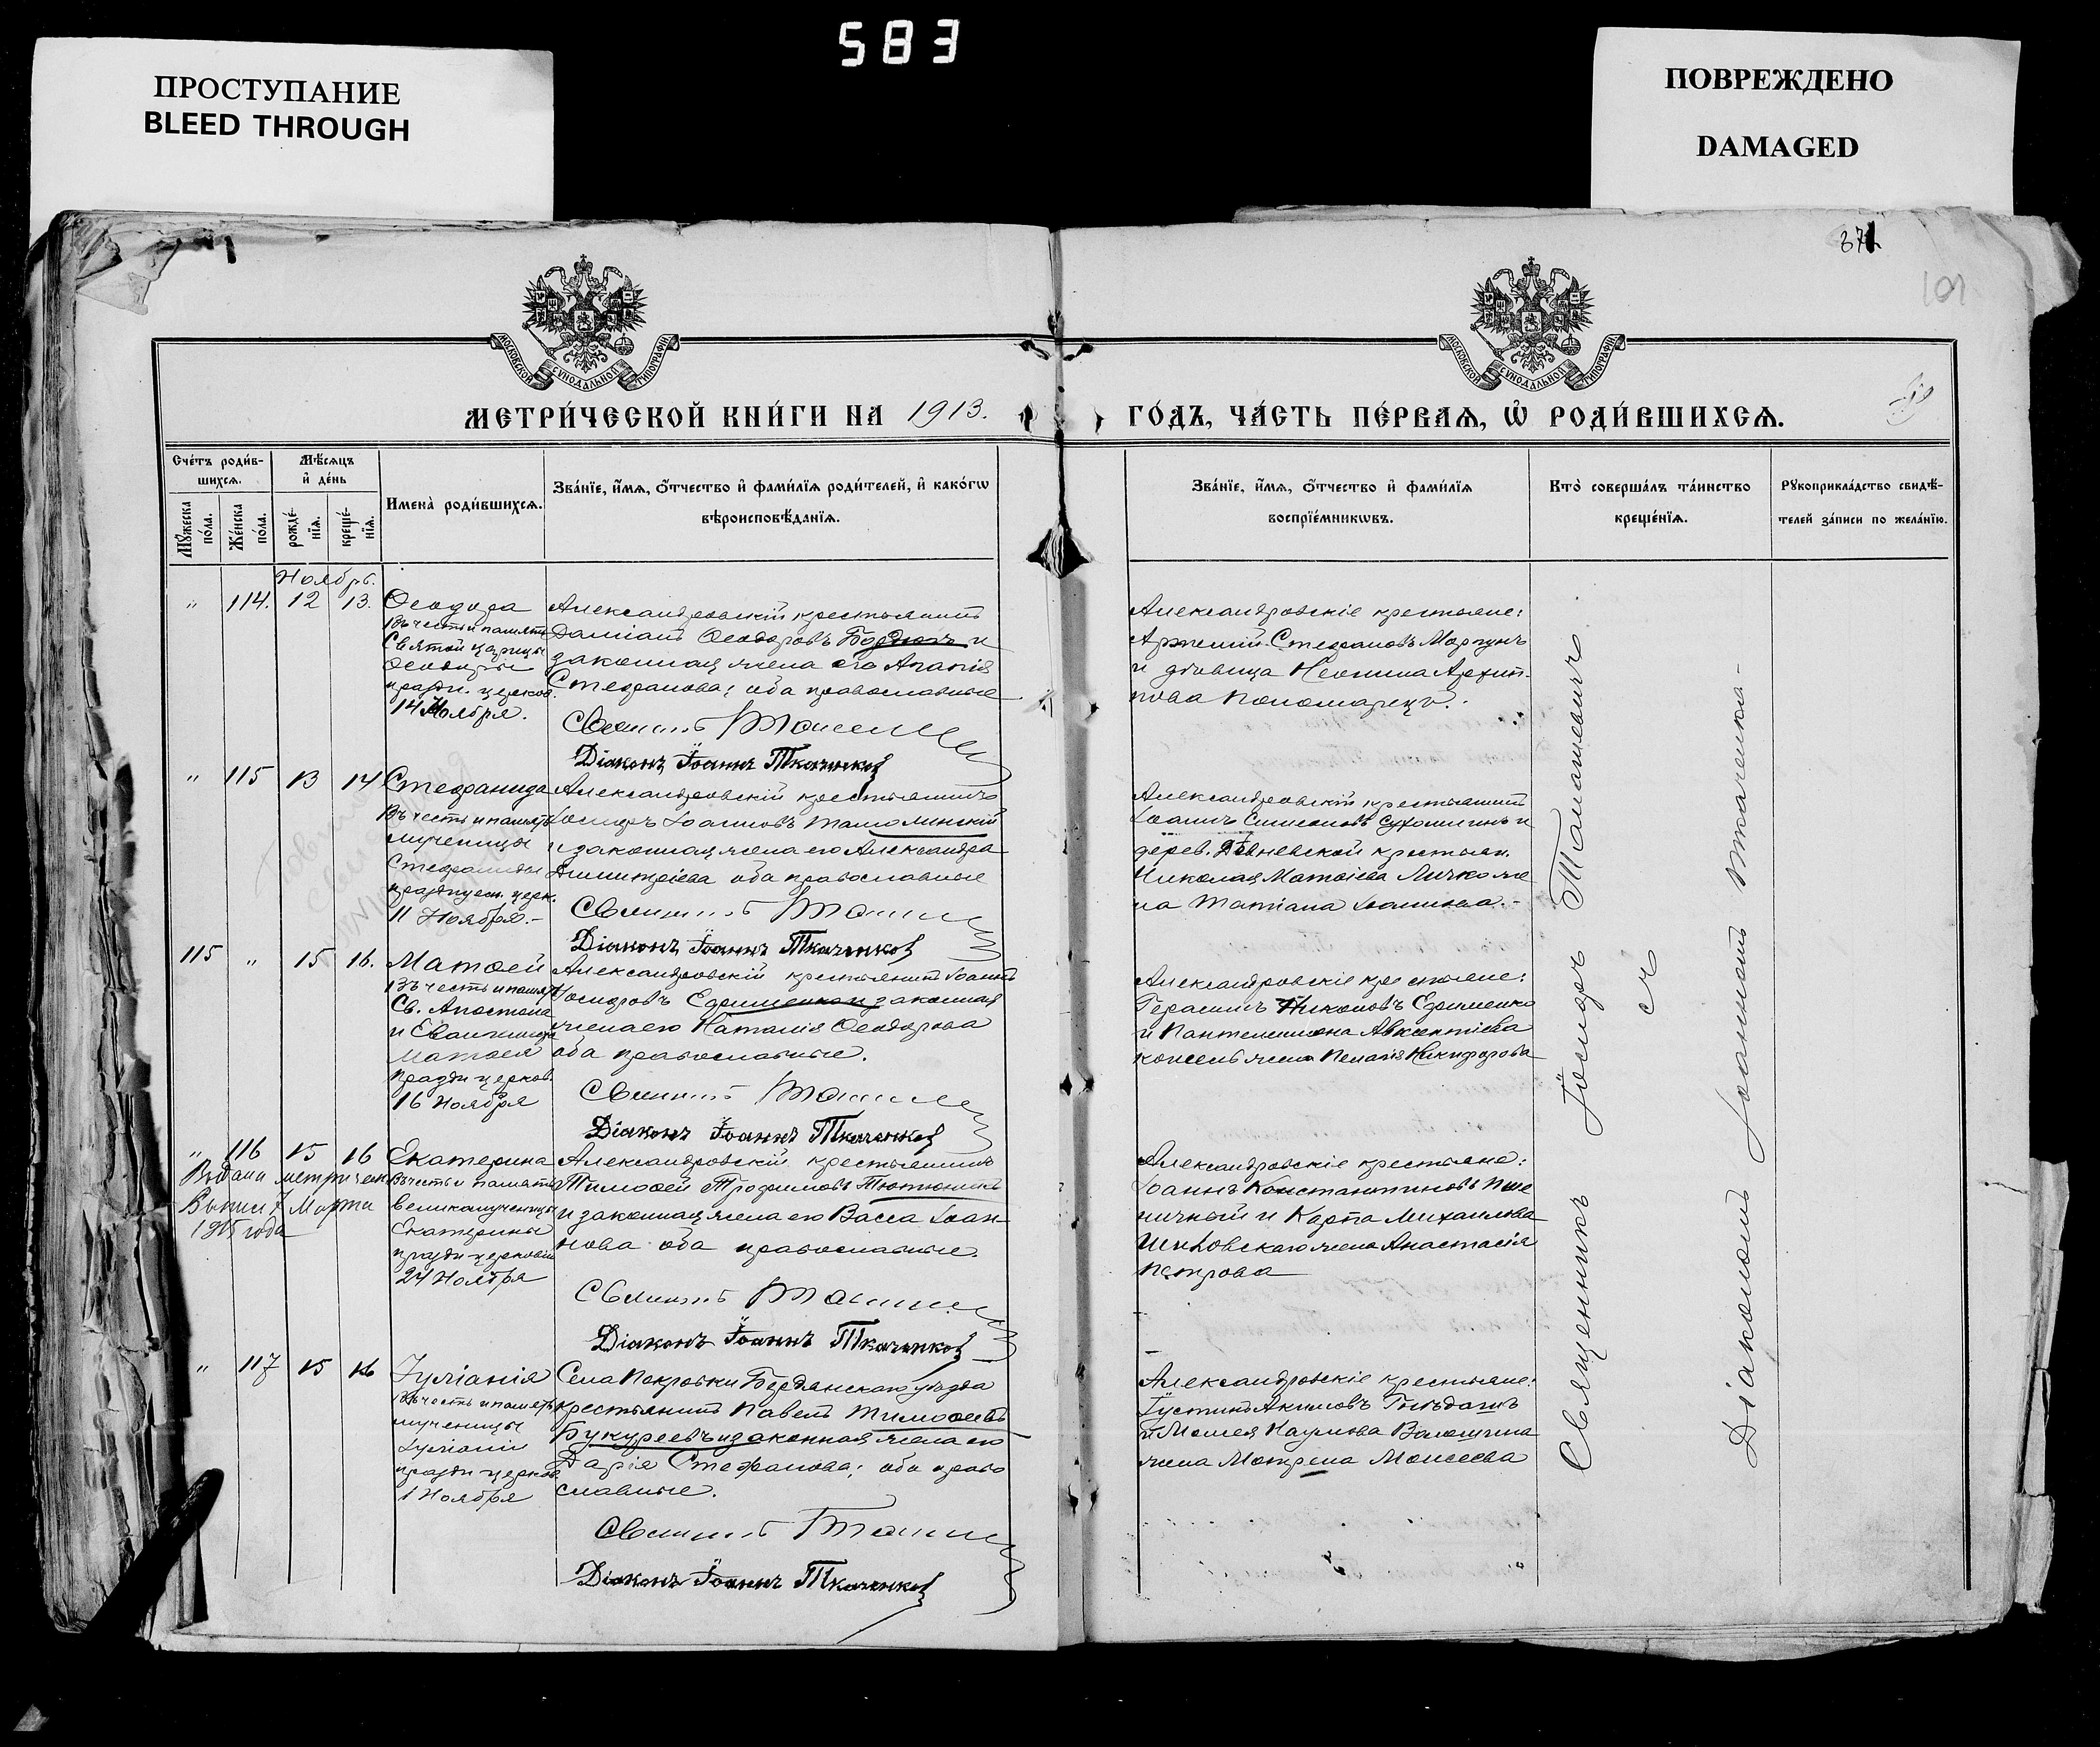 583
ПРОСТУПАНИЕ
BLEED THROUGH
ПОВРЕЖДЕНО
DAMAGED
371
101
МОСКОВСКОЙ СѴНОДАЛЬНОЙ ТИПОГРАФІИ
МОСКОВСКОЙ СѴНОДАЛЬНОЙ ТИПОГРАФІИ
МЕТРИ́ЧЕСКОЙ КНИ́ГИ НА 1913.
ГО́ДЪ, ЧА́СТЬ ПЕ́РВАѦ, Ѽ РОДИ́ВШИХСѦ.
Сче́тъ роди́в-
шихсѧ.
Мѣ́сѧцъ
и҆ де́нь
Мꙋ́жеска
по́ла.
Же́нска
по́ла.
рожде́-
нїѧ.
креще́-
нїѧ.
Имена̀ роди́вшихсѧ.
Зва́нїе, и҆́мѧ, ѻ҆́тчество и҆ фами́лїѧ роди́телей, и҆ како́гѡ
вѣроисповѣ́данїѧ.
Зва́нїе, и҆́мѧ, ѻ҆́тчество и҆ фами́лїѧ
воспрїе́мникѡвъ.
Кто̀ соверша́лъ та́инство
креще́нїѧ.
Рꙋкоприкла́дство свидѣ́-
телей за́писи по жела́нїю.
Ноябрь.
" 114. 12 13.
Ѳеодора
Въ честь и память
Святой царицы
Ѳеодоры
праздн. церков.
14 Ноября.
Александровскій крестьянинъ
Даміанъ Ѳеодоровъ Бардюхъ и
законная жена его Агапія
Стефанова; оба православные
Священникъ
Діаконъ Іоаннъ Ткаченко
Александровскіе крестьяне:
Артемій Стефановъ Моргунъ
и дѣвица Неонила Архип-
пова Пономарецъ.
" 115 13 14
Стефанида
Въ честь и память
мученицы
Стефаниды
празднуем. церк.
11 Ноября.-
Александровскій крестьянинъ
Іосифъ Іоанновъ
и законная жена его Александра
Димитріева оба православные
Священникъ
Діаконъ Іоаннъ Ткаченко
Александровскій крестьянинъ
Іоаннъ Симеоновъ и
дерев. крестьян.
Николая Матѳіева Личко же
на Татіана Іоаннова.-
115 " 15 16.
Матѳей
Въ честь и память
Св. Апостола
и Евангелиста
Матѳея
праздн. церков.
16 Ноября
Александровскій крестьянинъ Іоаннъ
Іосифовъ Ефименко и законная
жена его Наталія Ѳеодорова
оба православные.
Священникъ
Діаконъ Іоаннъ Ткаченко
Александровскіе крестьяне:
Герасимъ Никоновъ Ефименко
и Пантелеимона Авксентіева
жена Пелагія Никифорова
" 116 15 16
Выдана метрическ.
Выпис 7 Марта
1915 года
Екатерина
Въ честь и память
великомученицы
Екатерины
праздн. церковью
24 Ноября
Александровскій крестьянинъ
Тимоѳей Трофимовъ Тютюникъ
и законная жена его Васса Іоан-
нова оба православные.
Священникъ
Діаконъ Іоаннъ Ткаченко
Александровскіе крестьяне:
Іоаннъ Константиновъ Пше
ничный и Карпа Михаилова
жена Анастасія
Петрова
" 117 15 16
Іуліанія
Въ честь и память
мученицы
Іуліаніи
праздн. церков
1 Ноября
Села Покровки Бердянскаго уѣзда
крестьянинъ Павелъ Тимоѳеевъ
Букуреевъ и законная жена его
Дарія Стефанова; оба право
славные.
Священникъ
Діаконъ Іоаннъ Ткаченко
Александровскіе крестьяне:
Іустинъ Акимовъ Гнѣдашъ
и Моисея Наумова Волошина
жена Мотрона Моисеева
Священникъ Іосифъ Томашевичъ
съ
Діакономъ Іоанномъ Ткаченко-